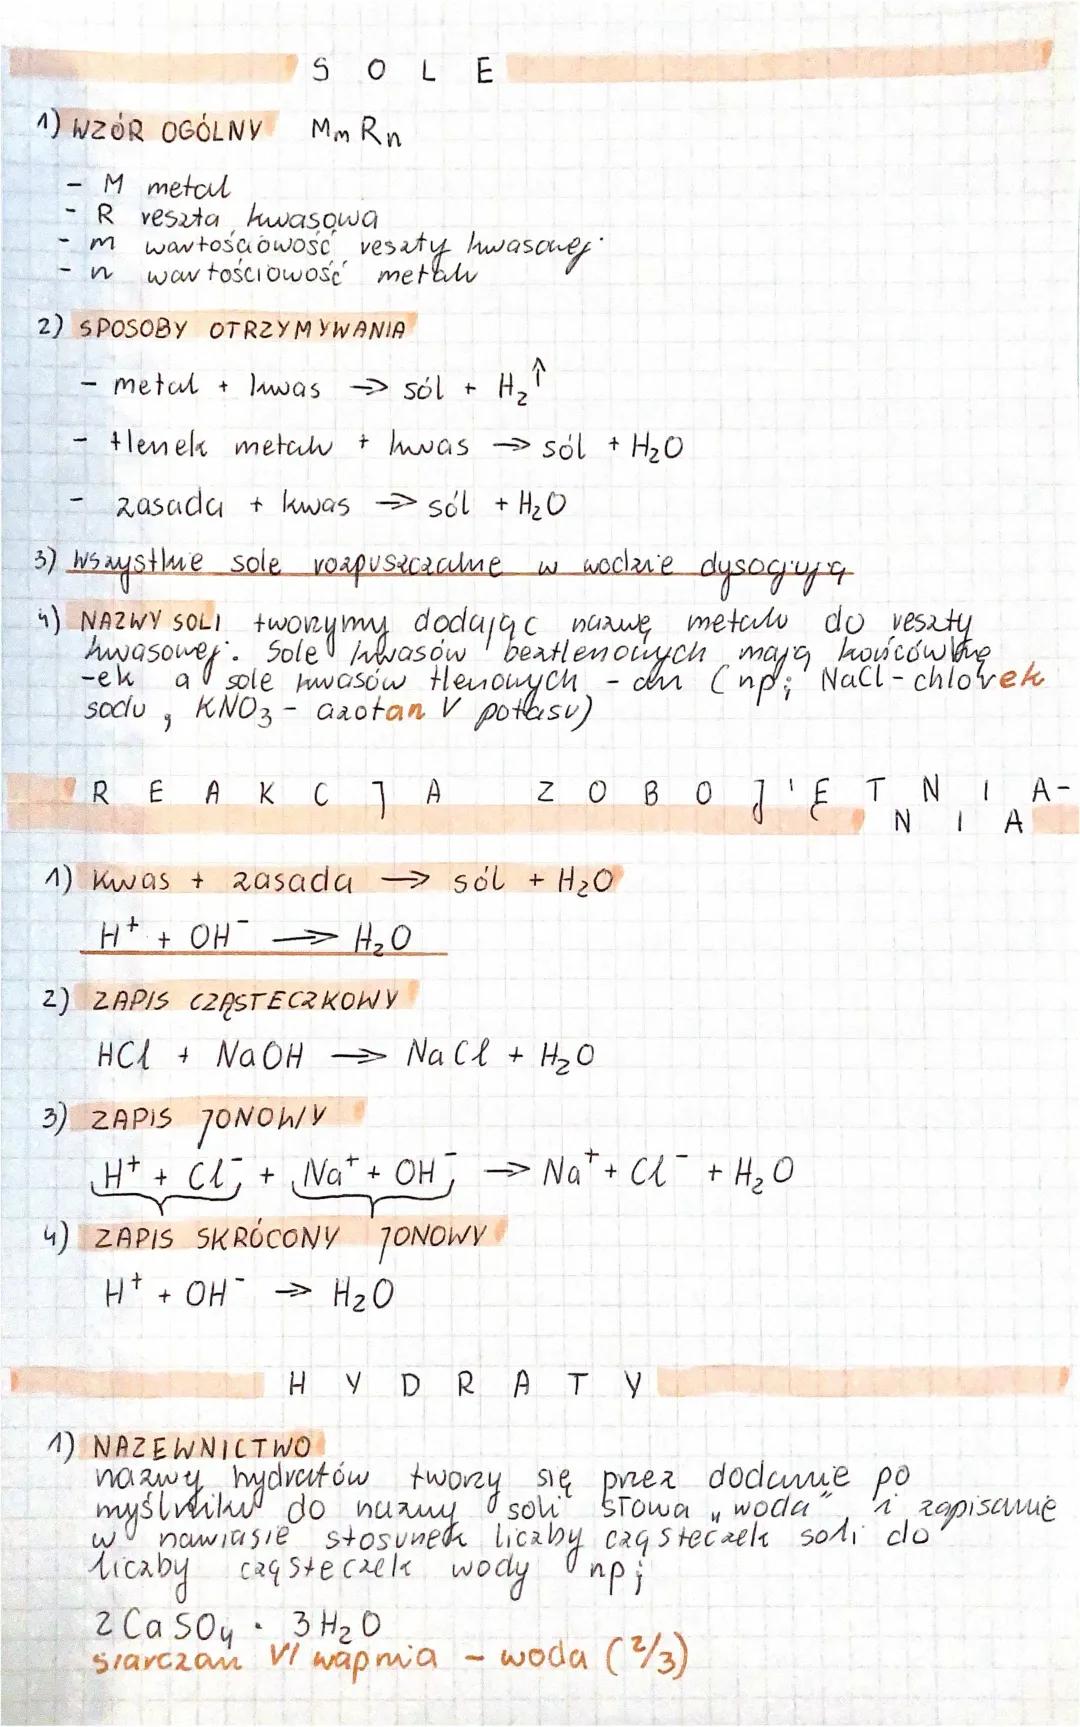 SOLE
1) WZÓR OGÓLNY MmRn
- M metal
- R reszta kwasowa
- m wartościowość reszty kwasowej
- n wartościowość metalu
2) SPOSOBY OTRZYMYWANIA
- metal + kwas → sól + H₂↑
- tlenek metalu + kwas → sól + H₂O
- zasada + kwas → sól + H₂O
3) Wszystkie sole rozpuszczalne w wodzie dysocjują
4) NAZWY SOLI tworzymy dodając nazwę metalu do reszty
kwasowej. Sole kwasów beztlenowych mają końcówkę
-ek a sole kwasów tlenowych - an (np; NaCl - chlorek
sodu, KNO₃ - azotan V potasu)
REAKCJA ZOBOJĘTNIA-
NIA
1) Kwas + zasada → sól + H₂O
H⁺ + OH⁻ → H₂O
2) ZAPIS CZĄSTECZKOWY
HCl + NaOH → NaCl + H₂O
3) ZAPIS JONOWY
H⁺ + Cl⁻ + Na⁺ + OH⁻ → Na⁺ + Cl⁻ + H₂O
4) ZAPIS SKRÓCONY JONOWY
H⁺ + OH⁻ → H₂O
HYDRATY
1) NAZEWNICTWO
nazwy hydratów tworzy się przez dodanie po
myślniku do nazwy soli słowa „woda" i zapisanie
w nawiasie stosunek liczby cząsteczek soli do
liczby cząsteczek wody np;
2CaSO₄ · 3H₂O
siarczan VI wapnia - woda (2/3)